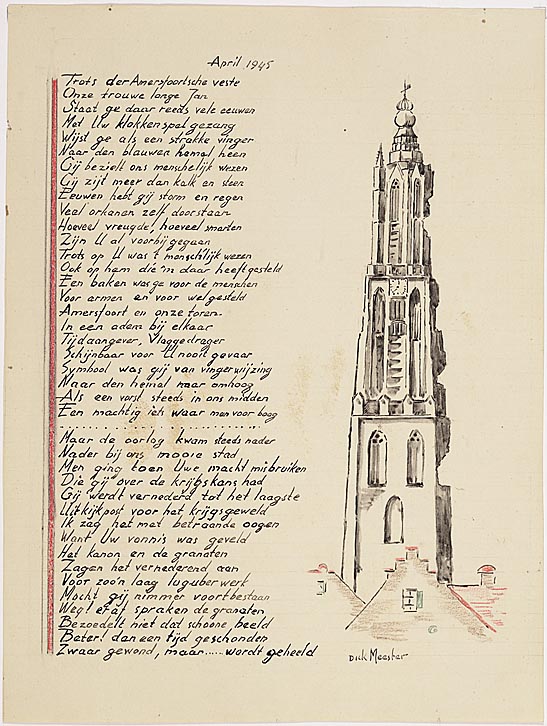 April 1945
Trots der Amersfoortsche veste
Onze trouwe lange Jan
Staat ge daar reeds vele eeuwen
Met Uw klokkenspel gezang
Wijst ge als een strakke vinger
Naar den blauwen hemel heen
Gij bezielt ons menschelijk wezen
Gij zijt meer dan kalk en steen
Eeuwen hebt gij storm en regen
Veel orkanen zelf doorstaan
Hoeveel vreugde, hoeveel smarten
Zijn U al voorbij gegaan
Trots op U was 't menschlijk wezen
Ook op hem die 'm daar heeft gesteld
Een baken was ge voor de menschen
Voor armen en voor welgesteld
Amersfoort en onze toren.
In een adem bij elkaar
Tijdaangever, Vlaggedrager
Schijnbaar voor U nooit gevaar
Symbool was gij van vingerwijzing
Naar den hemel naar omhoog
Als een vorst steeds in ons midden
Een machtig iets waar men voor boog
Maar de oorlog kwam steeds nader
Nader bij ons mooie stad
Men ging toen Uwe macht misbruiken
Die gij over de krijgskans had
Gij werdt vernederd tot het laagste
Uitkijkpost voor het krijgsgeweld
Ik zag het met betraande oogen
Want Uw vonnis was geveld
Het kanon en de granaten
Zagen het vernederend aan
Voor zoo'n laag luguber werk
Mocht gij nimmer voortbestaan
Weg! eraf spraken de granaten
Bezoedelt niet dat schoone, beeld
Beter! dan een tijd geschonden
Zwaar gewond, maar...... wordt geheeld
Dick Meester